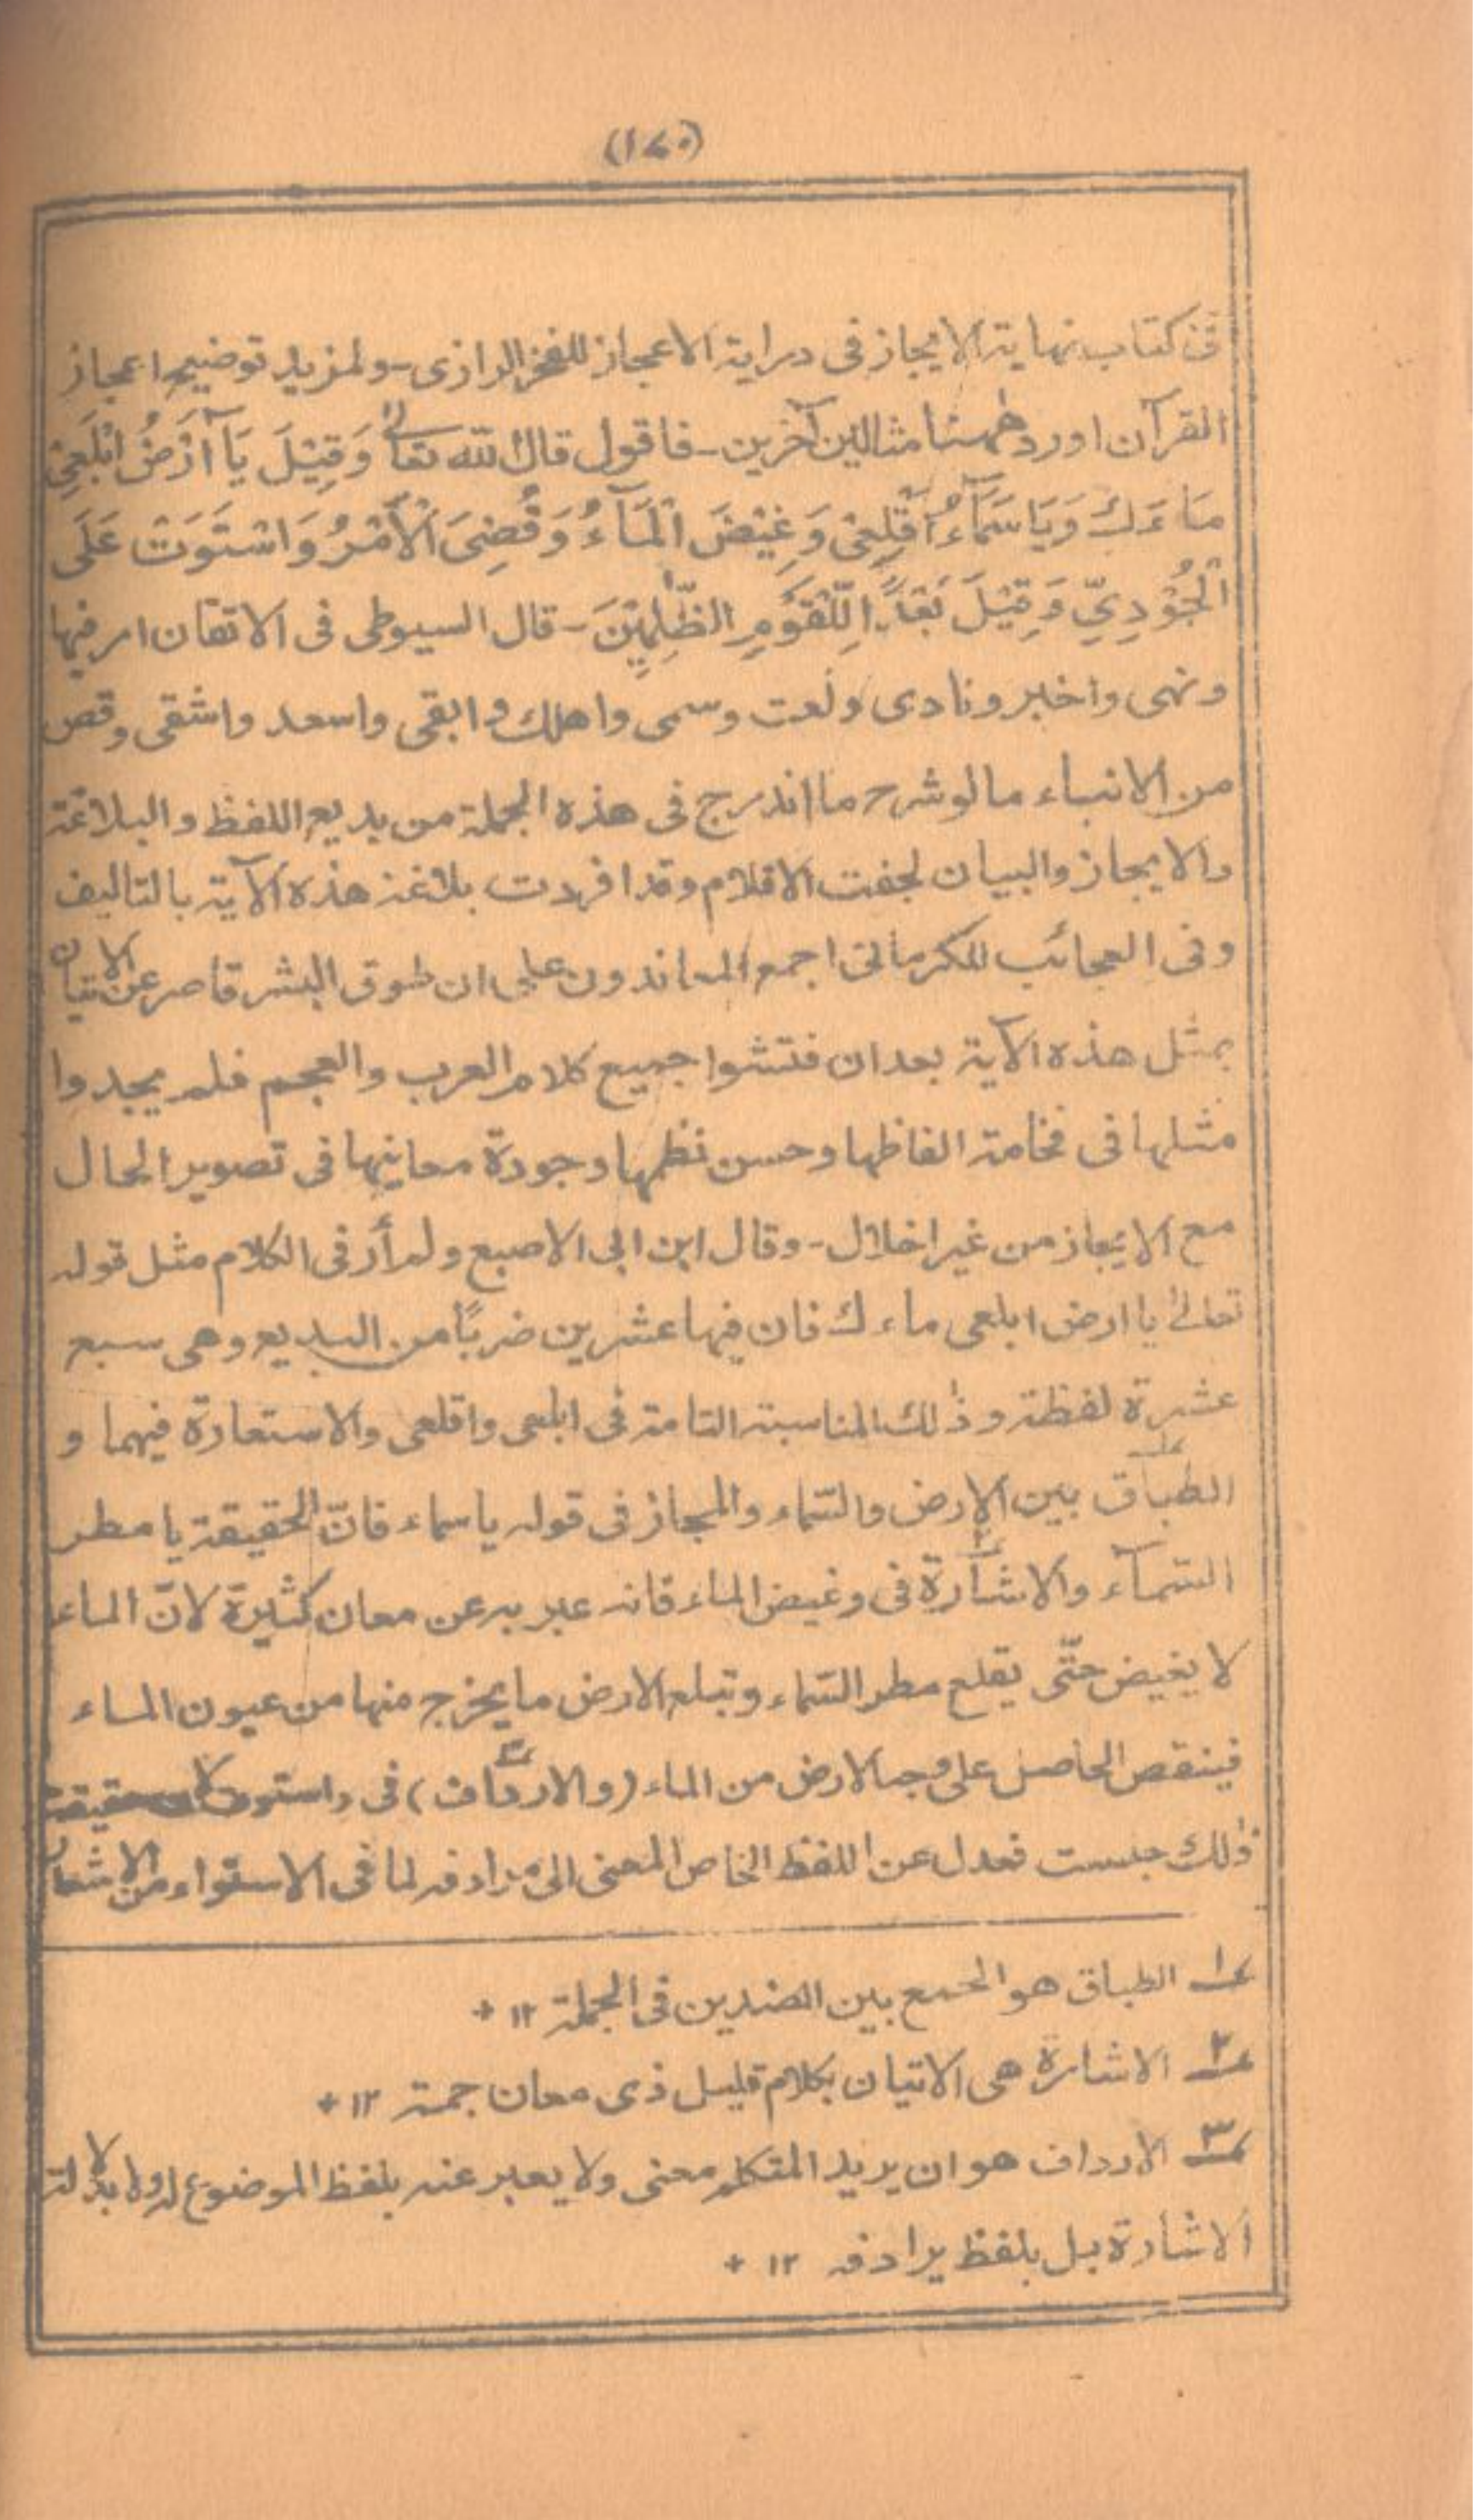 (١٧٠)
فى كتاب نهاية الايجاز فى دراية الاعجاز للفخر الرازى - ولمزيد توضيح اعجاز
القرآن اورد ههنا مثالين آخرين - فاقول قال الله تعالى وَقِيْلَ يَآ اَرْضُ ابْلَعِىْ
مَاءَكِ وَيَا سَمَآءُ اَقْلِعِىْ وَغِيْضَ الْمَآءُ وَقُضِىَ الْاَمْرُ وَاسْتَوَتْ عَلَى
الْجُوْدِيِّ وَقِيْلَ بُعْدًا لِّلْقَوْمِ الظّٰلِمِيْنَ - قال السيوطى فى الاتقان امر فيها
ونهى واخبر ونادى ونعت وسمى واهلك وابقى واسعد واشقى وقص
من الانباء مالو شرح ما اندرج فى هذه الجملة من بديع اللفظ والبلاغة
والايجاز والبيان لجفت الاقلام وقد افردت بلاغة هذه الآية بالتاليف
وفى العجائب للكرمانى اجمع المعاندون على ان طوق البشر قاصر عن الاتيان
بمثل هذه الآية بعد ان فتشوا جميع كلام العرب والعجم فلم يجدوا
مثلها فى فخامة الفاظها وحسن نظمها وجودة معانيها فى تصوير الحال
مع الايجاز من غير اخلال - وقال ابن ابى الاصبع ولم أر فى الكلام مثل قوله
تعالىٰ يا ارض ابلعى ماءك فان فيها عشرين ضربًا من البديع وهى سبع
عشرة لفظة وذٰلك المناسبة التامة فى ابلعى واقلعى والاستعارة فيهما و
الطباق ١ بين الارض والسّماء والمجاز فى قوله ياسماء فانّ الحقيقة يا مطر
السّمآء والاشارة ٢ فى وغيض الماء فانه عبر به عن معان كثيرة لانّ الماء
لا يغيض حتّى يقلع مطر السّماء وتبلع الارض ما يخرج منها من عيون الماء
فينقص الحاصل على وجه الارض من الماء (والارداف ٣) فى واستوت حقيقة
ذٰلك جلست فعدل عن اللفظ الخاص المعنى الى مرادفه لما فى الاستواء من الاشعار
١ الطباق هو الجمع بين الضدين فى الجملة ١٢ +
٢ الاشارة هى الاتيان بكلام قليل ذى معان جمة ١٢ +
٣ الارداف هو ان يريد المتكلم معنى ولا يعبر عنه بلفظ الموضوع له ولا بدلالة
الاشارة بل بلفظ يرادفه ١٢ +